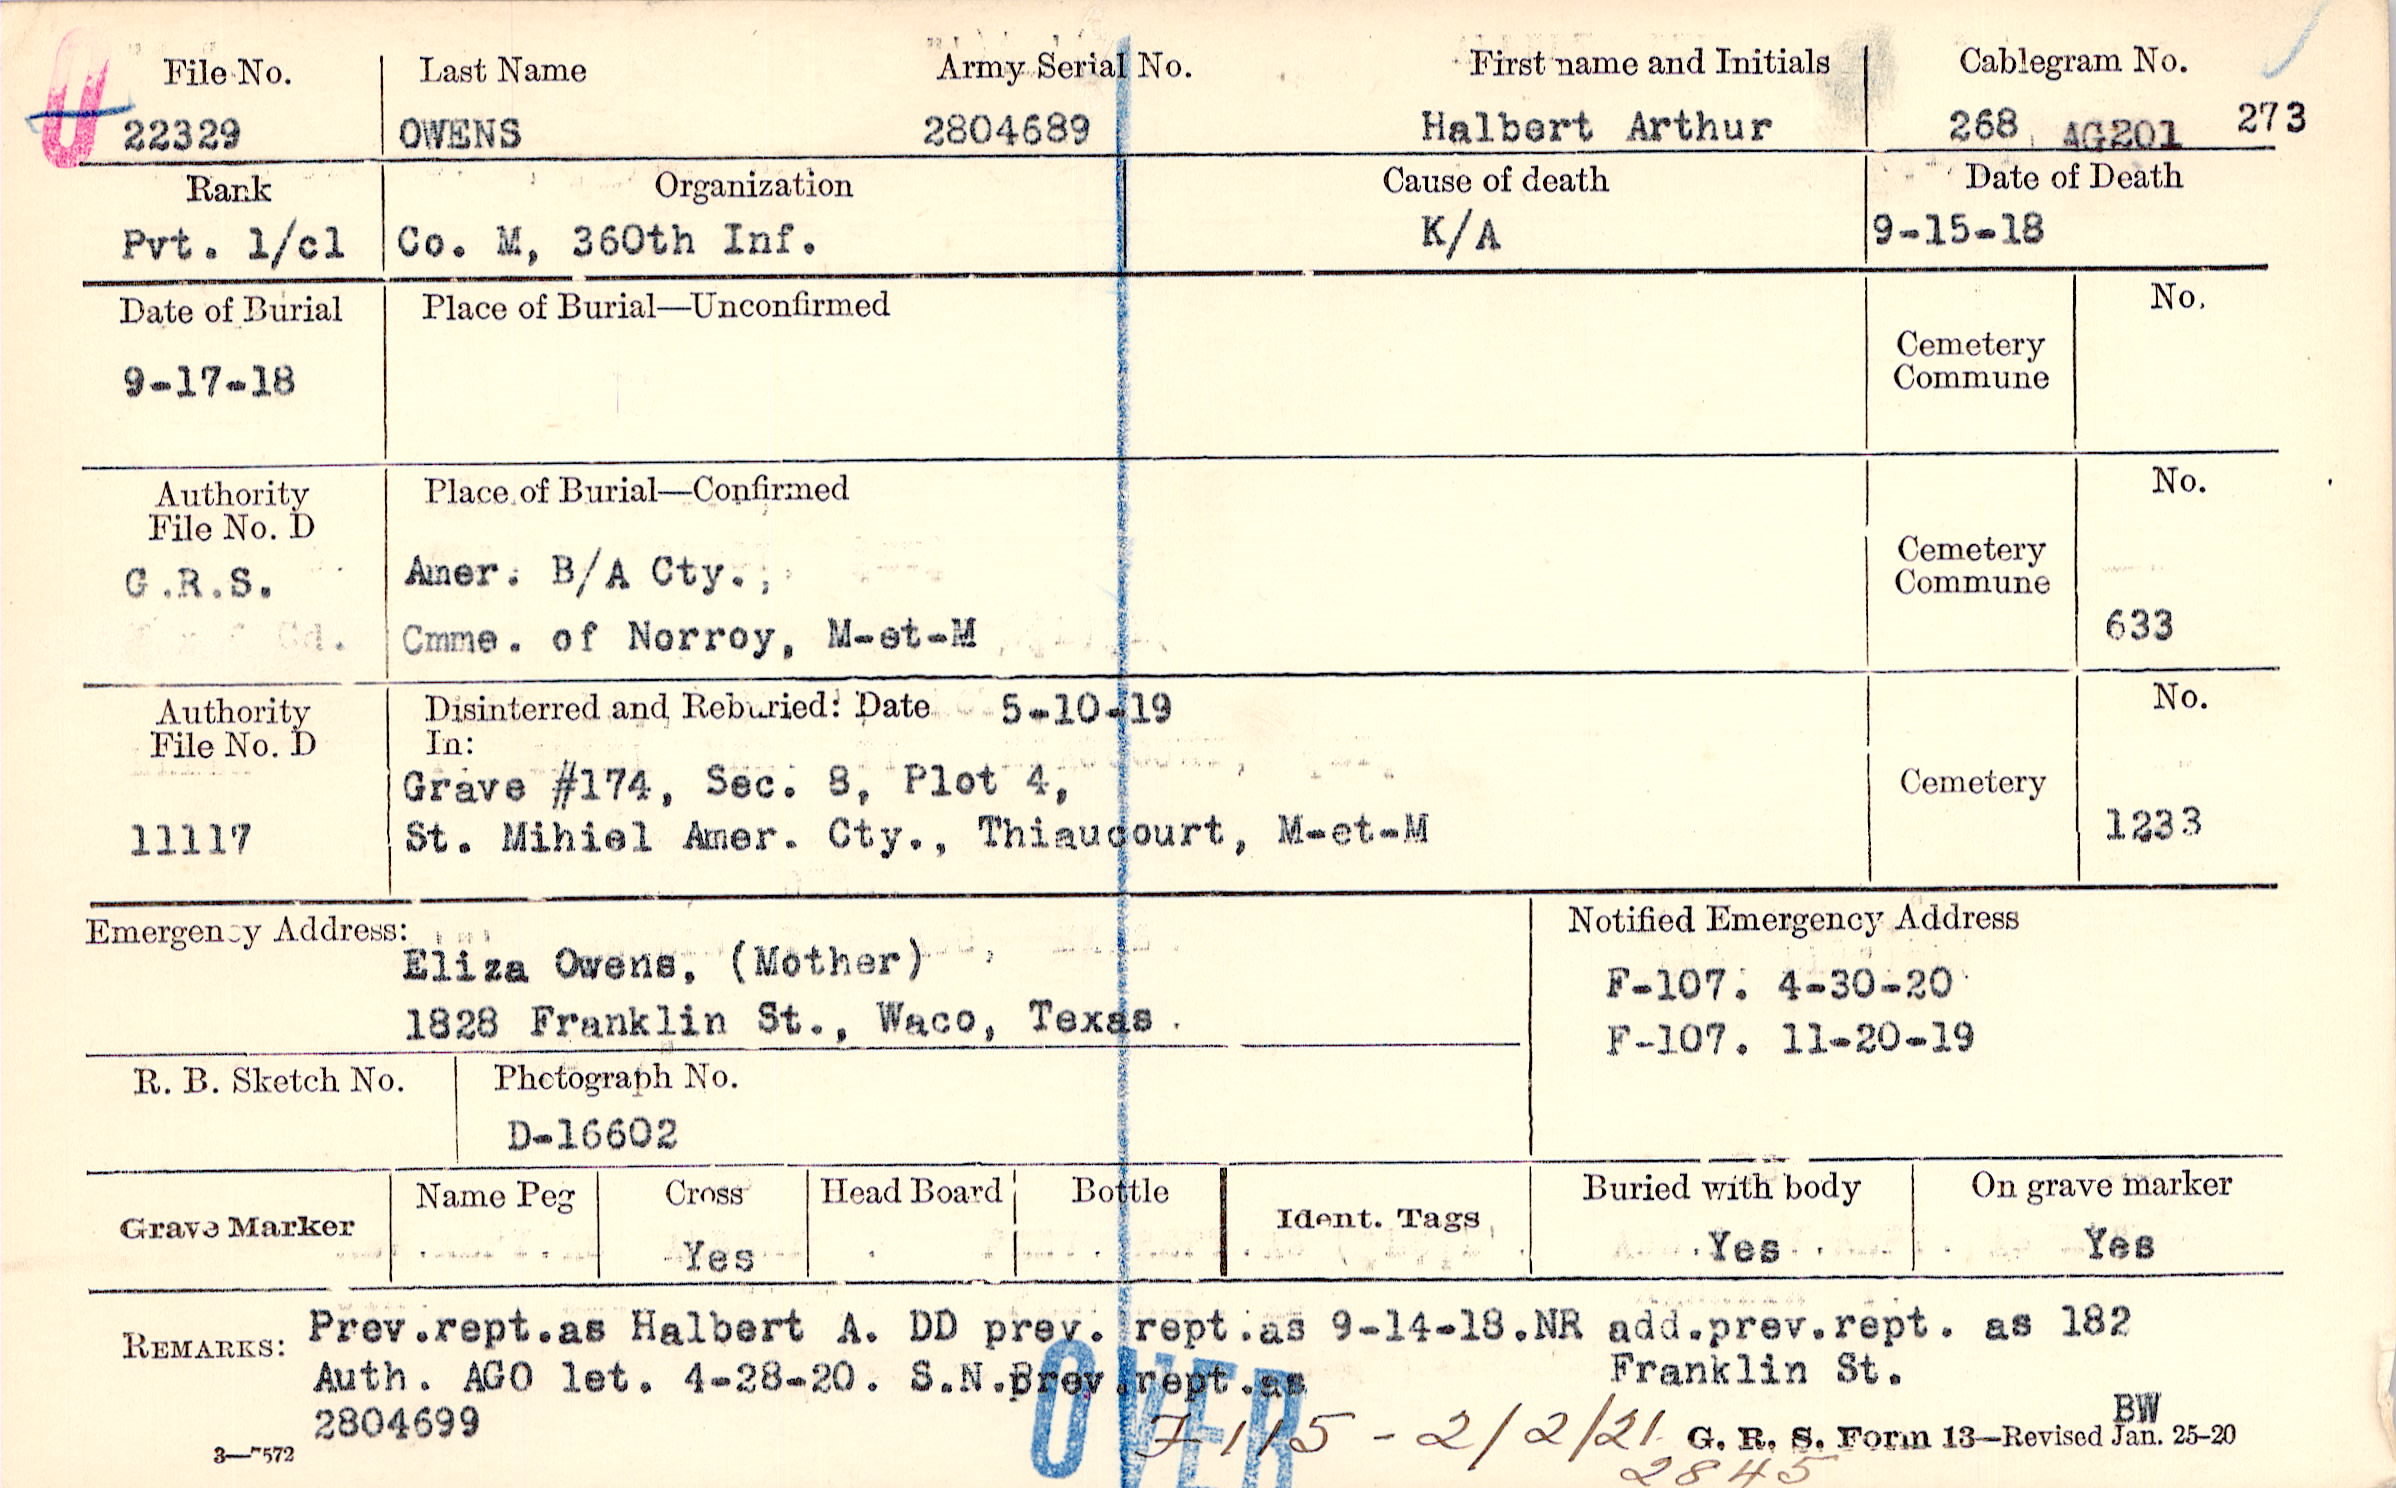 File No. Last Name Army Serial No. First name and Initials Cablegram No.
U 22329 OWENS 2804689 Halbert Arthur 268 AG201 273
Rank Organization Cause of death Date of Death
Pvt. 1/cl Co. M, 360th Inf. K/A 9-15-18
Date of Burial Place of Burial—Unconfirmed No.
9-17-18 Cemetery
Commune
Authority Place of Burial—Confirmed No.
File No. D
G.R.S. Amer. B/A Cty., Cemetery
Commune
Cmme. of Norroy, M-et-M 633
Authority Disinterred and Reburied: Date 5-10-19 No.
File No. D In:
Grave #174, Sec. 8, Plot 4, Cemetery
11117 St. Mihiel Amer. Cty., Thiaucourt, M-et-M 1233
Emergency Address: Notified Emergency Address
Eliza Owens, (Mother) F-107. 4-30-20
1828 Franklin St., Waco, Texas. F-107. 11-20-19
R. B. Sketch No. Photograph No.
D-16602
Grave Marker Name Peg Cross Head Board Bottle Ident. Tags Buried with body On grave marker
Yes Yes Yes
REMARKS: Prev.rept.as Halbert A. DD prev. rept.as 9-14-18.NR add.prev.rept. as 182
Auth. AGO let. 4-28-20. S.N.Prev.rept.as Franklin St.
2804699
OVER
7-115 - 2/2/21
BW
3—7572 G. R. S. Form 13—Revised Jan. 25-20
2845